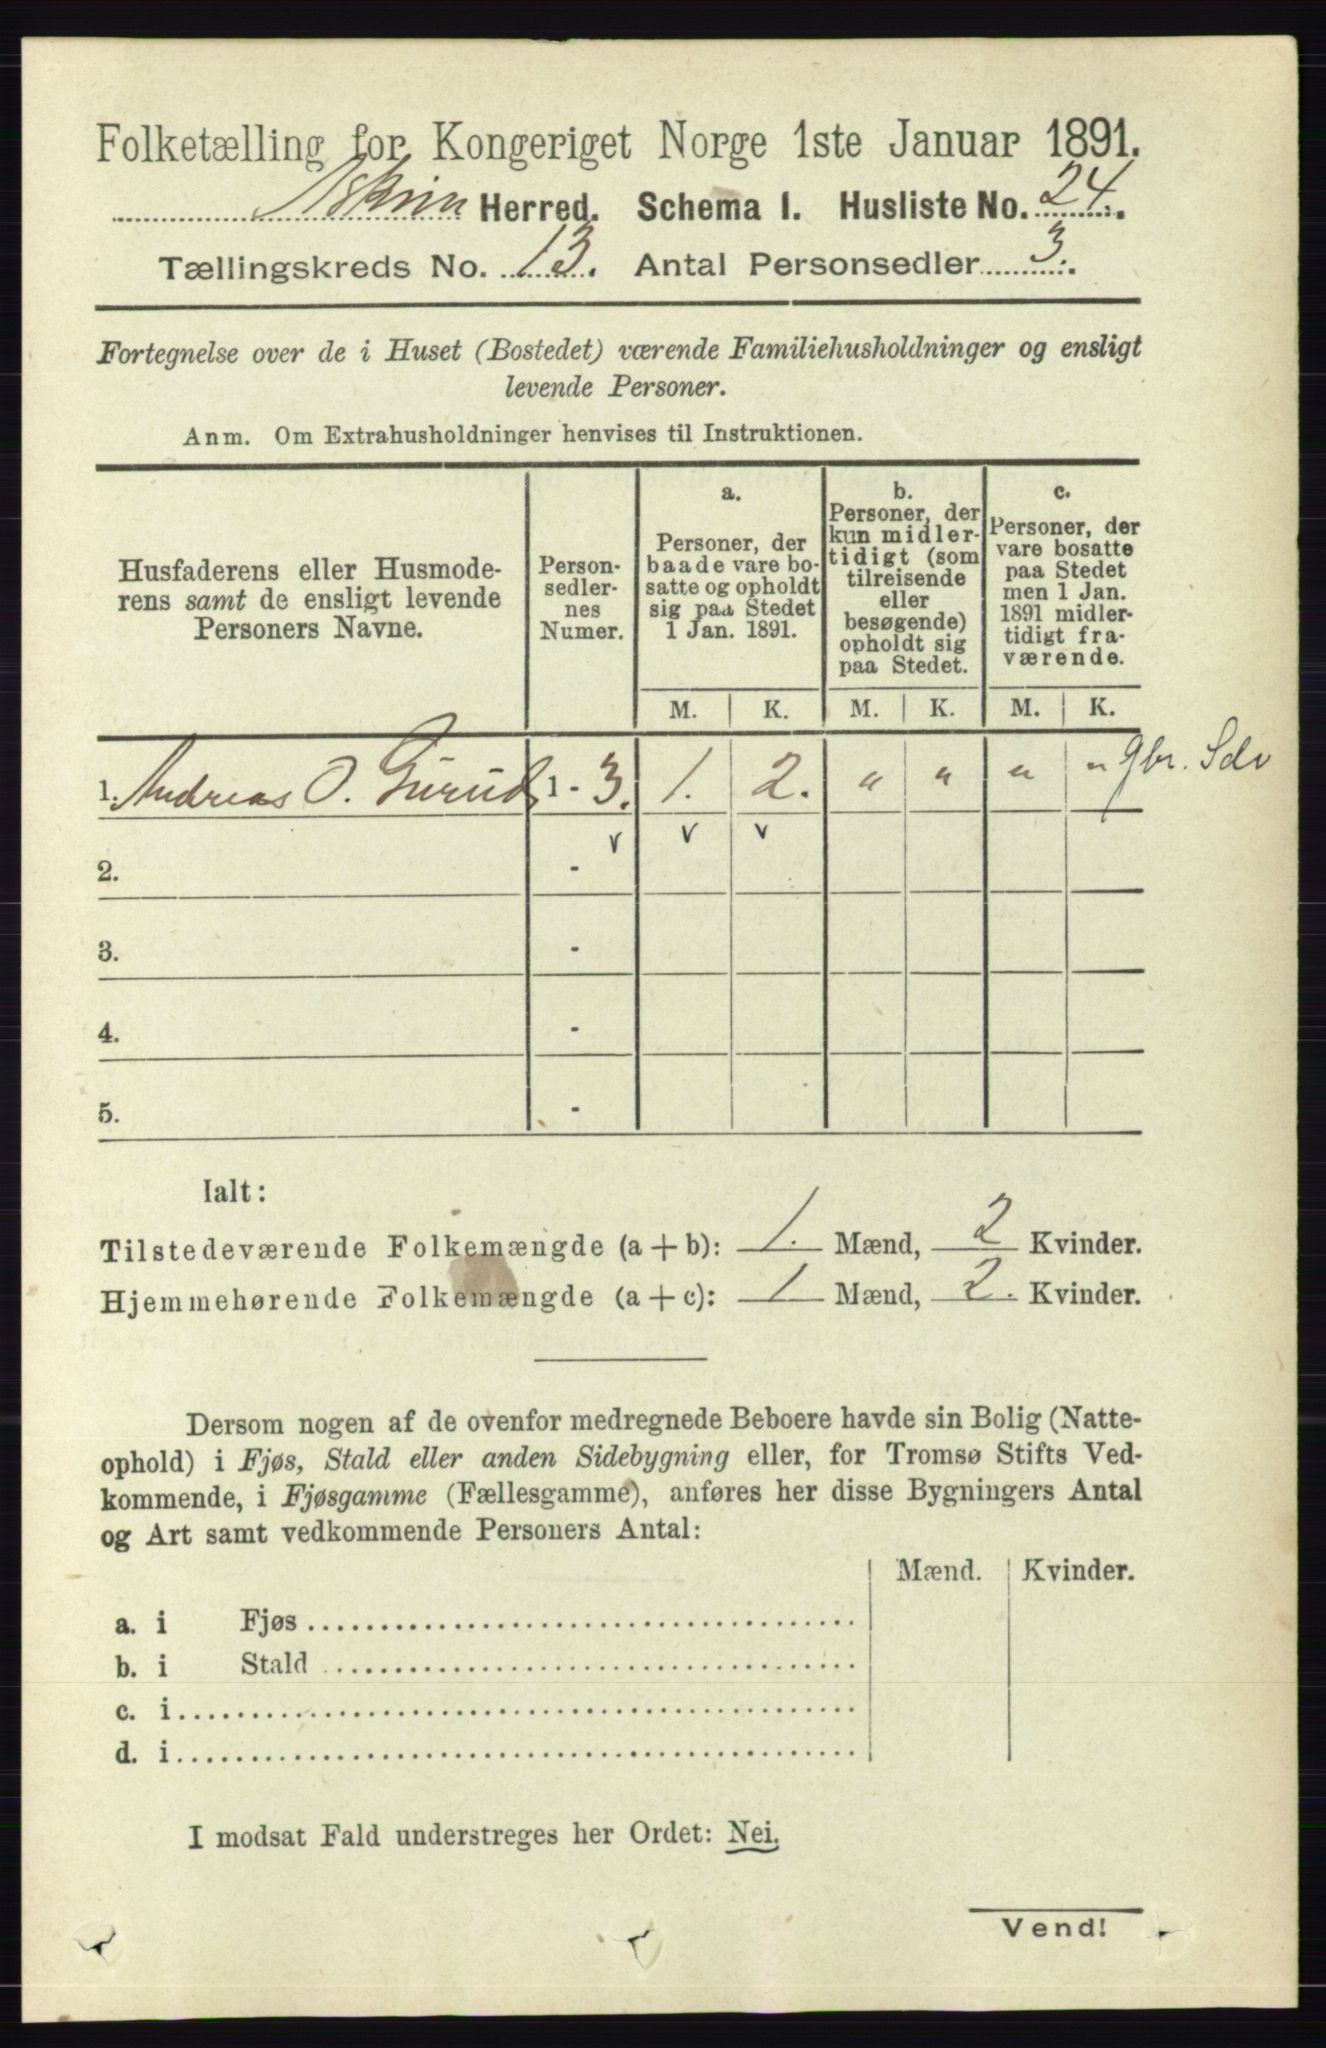 Folketælling for Kongeriget Norge 1ste Januar 1891.
Askim Herred. Schema I. Husliste No. 24.
Tællingskreds No. 13. Antal Personsedler 3.
Fortegnelse over de i Huset (Bostedet) værende Familiehusholdninger og ensligt
levende Personer.
Anm. Om Extrahusholdninger henvises til Instruktionen.
Husfaderens eller Husmode-
rens samt de ensligt levende
Personers Navne.
Person-
sedler-
nes
Numer.
a.
Personer, der
baade vare bo-
satte og opholdt
sig paa Stedet
1 Jan. 1891.
b.
Personer, der
kun midler-
tidigt (som
tilreisende
eller
besøgende)
opholdt sig
paa Stedet.
c.
Personer, der
vare bosatte
paa Stedet
men 1 Jan.
1891 midler-
tidigt fra-
værende.
M. K. M. K. M. K.
1. Andreas O. Gurud 1 - 3. 1. 2. " " " " gbr. Selv
v v v
2. -
3. -
4. -
5. -
Ialt:
Tilstedeværende Folkemængde (a+b): 1. Mænd, 2 Kvinder.
Hjemmehørende Folkemængde (a+c): 1 Mænd, 2. Kvinder.
Dersom nogen af de ovenfor medregnede Beboere havde sin Bolig (Natte-
ophold) i Fjøs, Stald eller anden Sidebygning eller, for Tromsø Stifts Ved-
kommende, i Fjøsgamme (Fællesgamme), anføres her disse Bygningers Antal
og Art samt vedkommende Personers Antal:
Mænd. Kvinder.
a. i Fjøs
b. i Stald
c. i
d. i
I modsat Fald understreges her Ordet: Nei.
Vend!